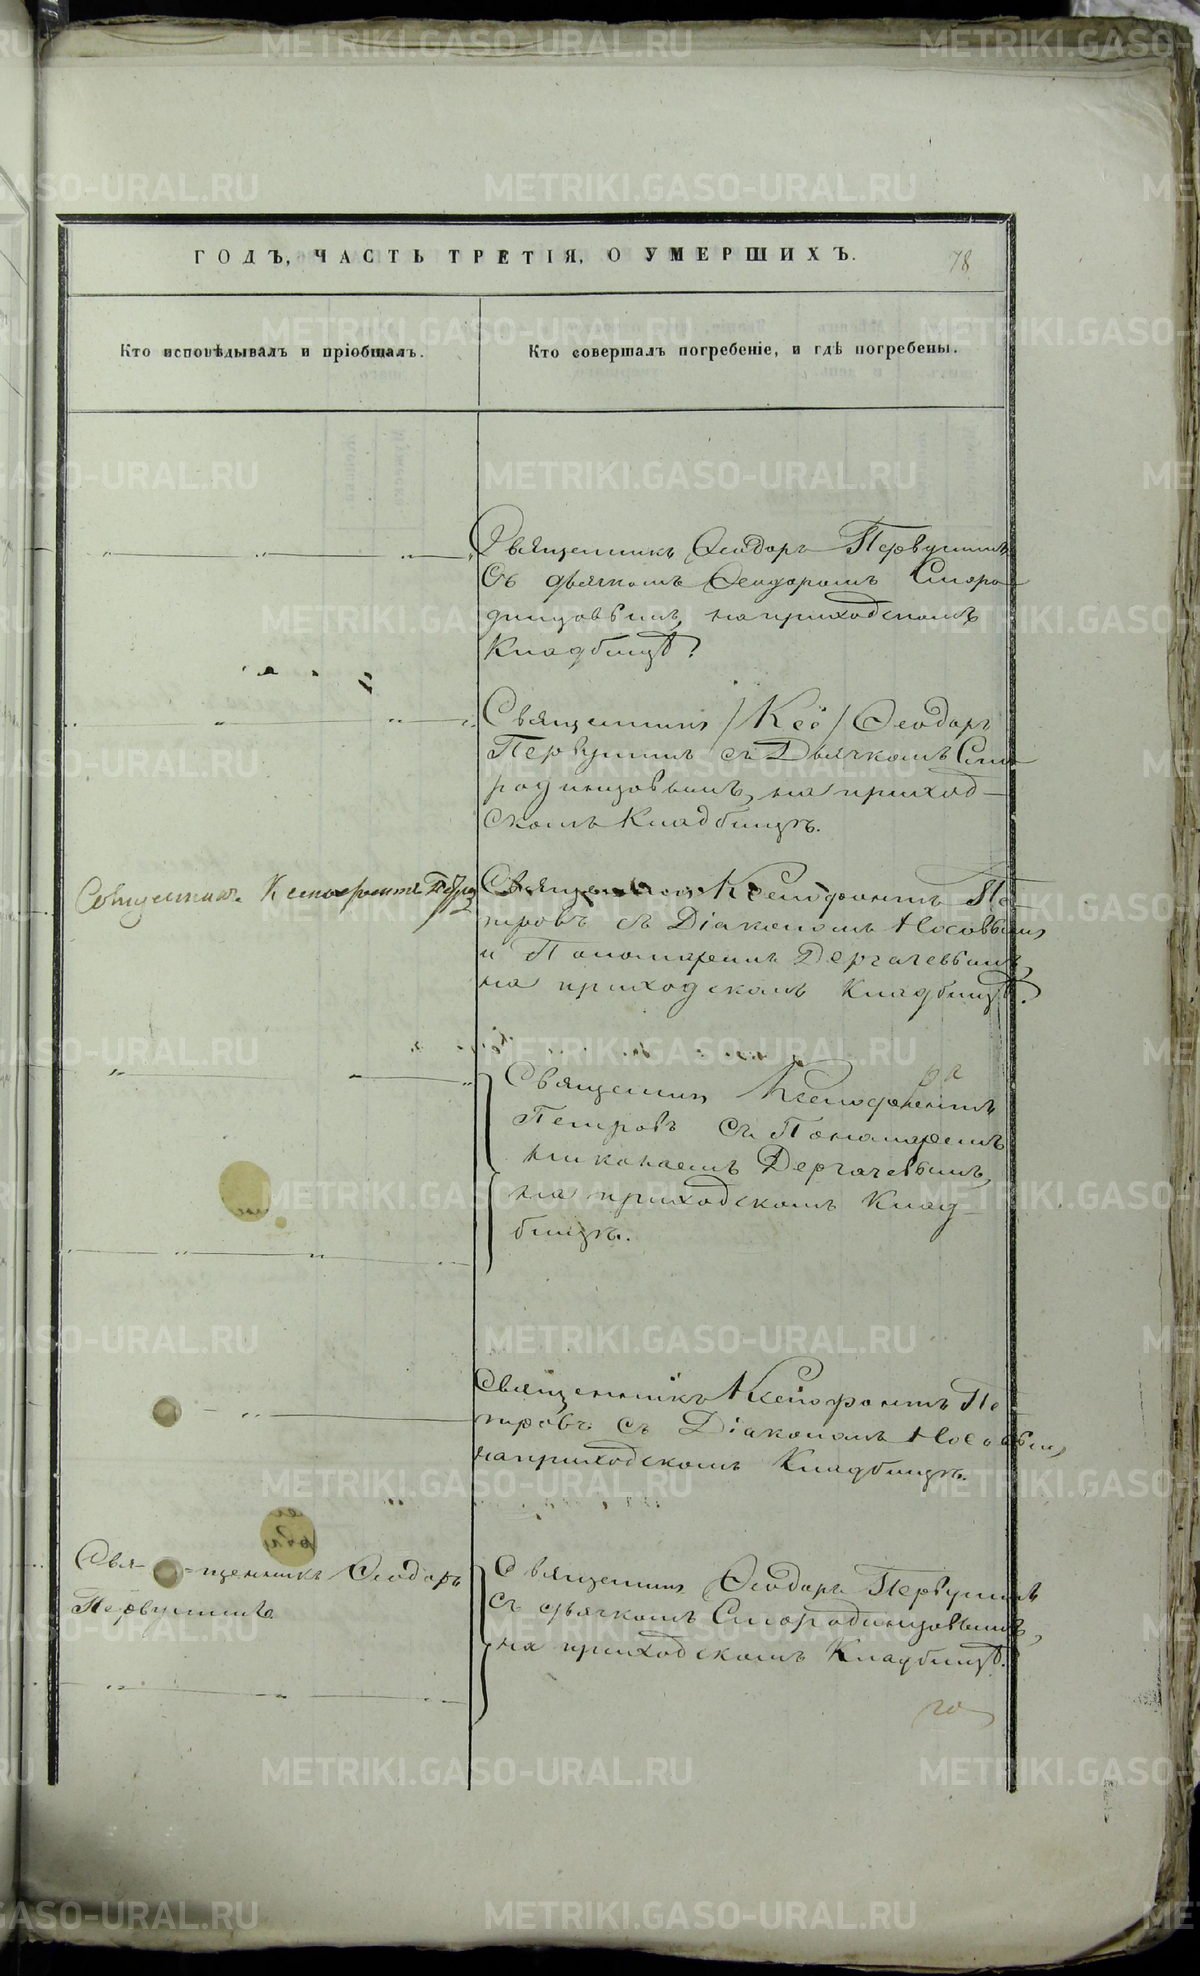 ГОДЪ, ЧАСТЬ ТРЕТІЯ, О УМЕРШИХЪ.
78
Кто исповѣдывалъ и пріобщалъ.
Кто совершалъ погребеніе, и гдѣ погребены.
Священникъ Ѳеодоръ Первушинъ
Съ дьячкомъ Ѳеодоромъ Сморо
динцовымъ, на приходскомъ
Кладбищѣ.
Священникъ Ѳеодоръ
Первушинъ съ Дьячкомъ Смо
родинцовымъ, на приход-
скомъ Кладбищѣ.
Священникъ Ксенофонтъ
Священникъ Ксенофонтъ Пе-
тровъ съ Діакономъ Носовымъ
и Пономаремъ Дергачевымъ,
на приходскомъ Кладбищѣ.
Священникъ Ксенофонтъ
Петровъ съ Пономаремъ
Николаемъ Дергачевымъ,
на приходскомъ Клад-
бищѣ.
Священникъ Ксенофонтъ Пе-
тровъ съ Діакономъ Носовым,
на приходскомъ Кладбищѣ.
Свя- -щенникъ Ѳеодоръ
Первушинъ
Священникъ Ѳеодоръ Первушинъ
съ дьячкомъ Смородинцовымъ,
на приходскомъ Кладбищѣ.
METRIKI.GASO-URAL.RU